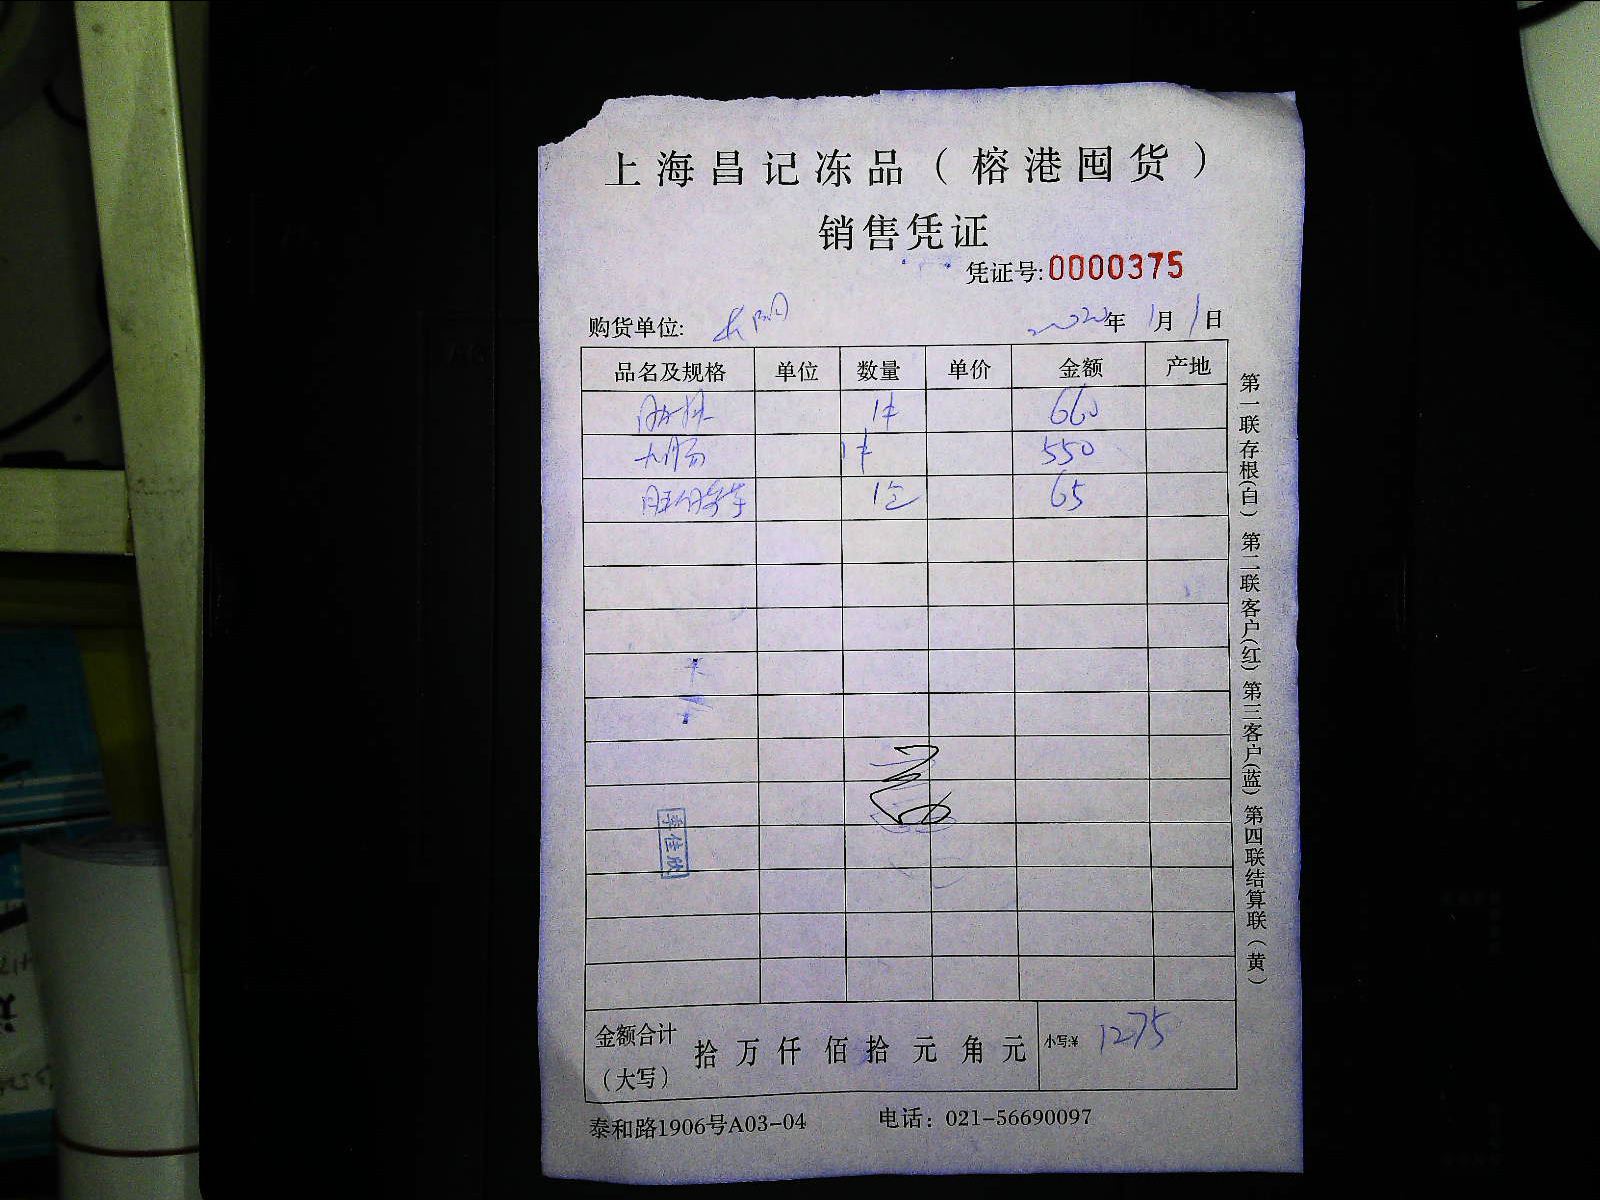 上海昌记冻品（榕港囤货）
销售凭证
凭证号:0000375
购货单位:
2022年 1月 1日
品名及规格 单位 数量 单价 金额 产地
1件 660
大肠 1件 550
1包 65
李佳欣
金额合计（大写） 拾 万 仟 佰 拾 元 角 元 小写:¥ 1275
泰和路1906号A03-04 电话：021-56690097
第一联存根(白) 第二联客户(红) 第三客户(蓝) 第四联结算联(黄)